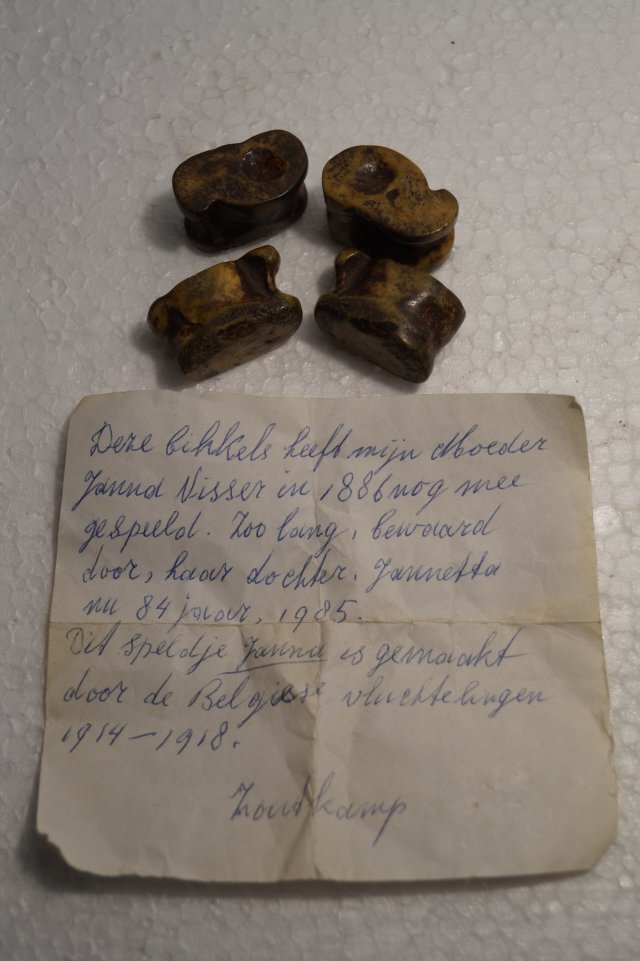 Deze bikkels heeft mijn Moeder
Janna Visser in 1886 nog mee
gespeeld. Zoo lang, bewaard
door, haar dochter. Jannetta
nu 84 jaar, 1985.
Dit speldje Janna is gemaakt
door de Belgiese vluchtelingen
1914-1918.
Zoutkamp